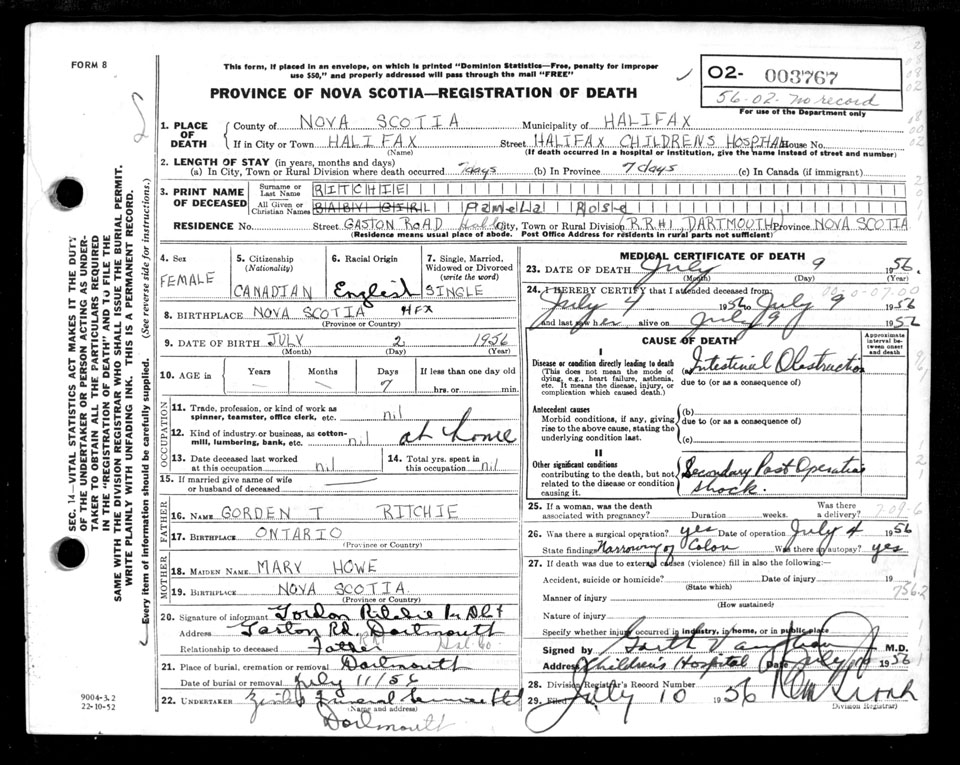 FORM 8
This form, if posted in an envelope, on which is printed "Dominion Statistics—Free, penalty for improper
use $50," and properly addressed will pass through the mail "FREE"
02- 003767
56-02- no record
For use of the Department only
PROVINCE OF NOVA SCOTIA—REGISTRATION OF DEATH
1. PLACE OF DEATH
County of NOVA SCOTIA Municipality of HALIFAX
If in City or Town HALIFAX Street HALIFAX CHILDRENS HOSPITAL House No.
(Name) (If death occurred in a hospital or institution, give the name instead of street and number)
2. LENGTH OF STAY (in years, months and days)
(a) In City, Town or Rural Division where death occurred 7days (b) In Province 7 days (c) In Canada (if immigrant)
3. PRINT NAME OF DECEASED
Surname or Last Name RITCHIE
All Given or Christian Names BABY GIRL Pamela Rose
RESIDENCE No. Street GASTON ROAD City, Town or Rural Division R.R#1, DARTMOUTH Province NOVA SCOTIA
(Residence means usual place of abode. Post Office Address for residents in rural parts not sufficient)
4. Sex
FEMALE
5. Citizenship
(Nationality)
CANADIAN
6. Racial Origin
English
7. Single, Married,
Widowed or Divorced
(write the word)
SINGLE
8. BIRTHPLACE NOVA SCOTIA HFX
(Province or Country)
9. DATE OF BIRTH JULY 2 1956
(Month) (Day) (Year)
10. AGE in
Years Months Days If less than one day old
— — 7 hrs. or min.
OCCUPATION
11. Trade, profession, or kind of work as
spinner, teamster, office clerk, etc. nil
12. Kind of industry or business, as cotton-
mill, lumbering, bank, etc. nil at home
13. Date deceased last worked
at this occupation nil
14. Total yrs. spent in
this occupation nil
15. If married give name of wife
or husband of deceased
FATHER
16. NAME GORDEN T RITCHIE
17. BIRTHPLACE ONTARIO
(Province or Country)
MOTHER
18. MAIDEN NAME MARY HOWE
19. BIRTHPLACE NOVA SCOTIA.
(Province or Country)
20. Signature of informant Gordon Ritchie
Address Gaston Rd., Dartmouth
Relationship to deceased Father
21. Place of burial, cremation or removal Dartmouth
Date of burial or removal July 11/56
22. UNDERTAKER Funeral Service Ltd
(Name and address)
Dartmouth
MEDICAL CERTIFICATE OF DEATH
23. DATE OF DEATH July 9 1956.
(Month) (Day) (Year)
24. I HEREBY CERTIFY that I attended deceased from:
July 4 1956 to July 9 1956
and last saw her alive on July 9 1956
CAUSE OF DEATH
Approximate
interval be-
tween onset
and death
I
Disease or condition directly leading to death
(This does not mean the mode of
dying, e.g., heart failure, asthenia,
etc. It means the disease, injury, or
complication which caused death.)
(a) Intestinal Obstruction
due to (or as a consequence of)
Antecedent causes
Morbid conditions, if any, giving
rise to the above cause, stating the
underlying condition last.
(b)
due to (or as a consequence of)
(c)
II
Other significant conditions
contributing to the death, but not
related to the disease or condition
causing it.
Secondary Post Operative
shock.
25. If a woman, was the death
associated with pregnancy? Duration weeks. Was there
a delivery?
26. Was there a surgical operation? yes Date of operation July 4 1956
State findings Narrowing of Colon Was there an autopsy? yes
27. If death was due to external causes (violence) fill in also the following:—
Accident, suicide or homicide? Date of injury 19
(State which)
Manner of injury
(How sustained)
756.2
Nature of injury
Specify whether injury occurred in industry, in home, or in public place
Signed by M.D.
Address Children's Hospital Date July 10 1956
28. Division Registrar's Record Number
29. Filed July 10 1956
Division Registrar
SEC. 14—VITAL STATISTICS ACT MAKES IT THE DUTY
OF THE UNDERTAKER OR PERSON ACTING AS UNDER-
TAKER TO OBTAIN ALL THE PARTICULARS REQUIRED
IN THE "REGISTRATION OF DEATH" AND TO FILE THE
SAME WITH THE DIVISION REGISTRAR WHO SHALL ISSUE THE BURIAL PERMIT.
WRITE PLAINLY WITH UNFADING INK. THIS IS A PERMANENT RECORD.
Every item of Information should be carefully supplied. (See reverse side for instructions.)
9004-3.2
22-10-52